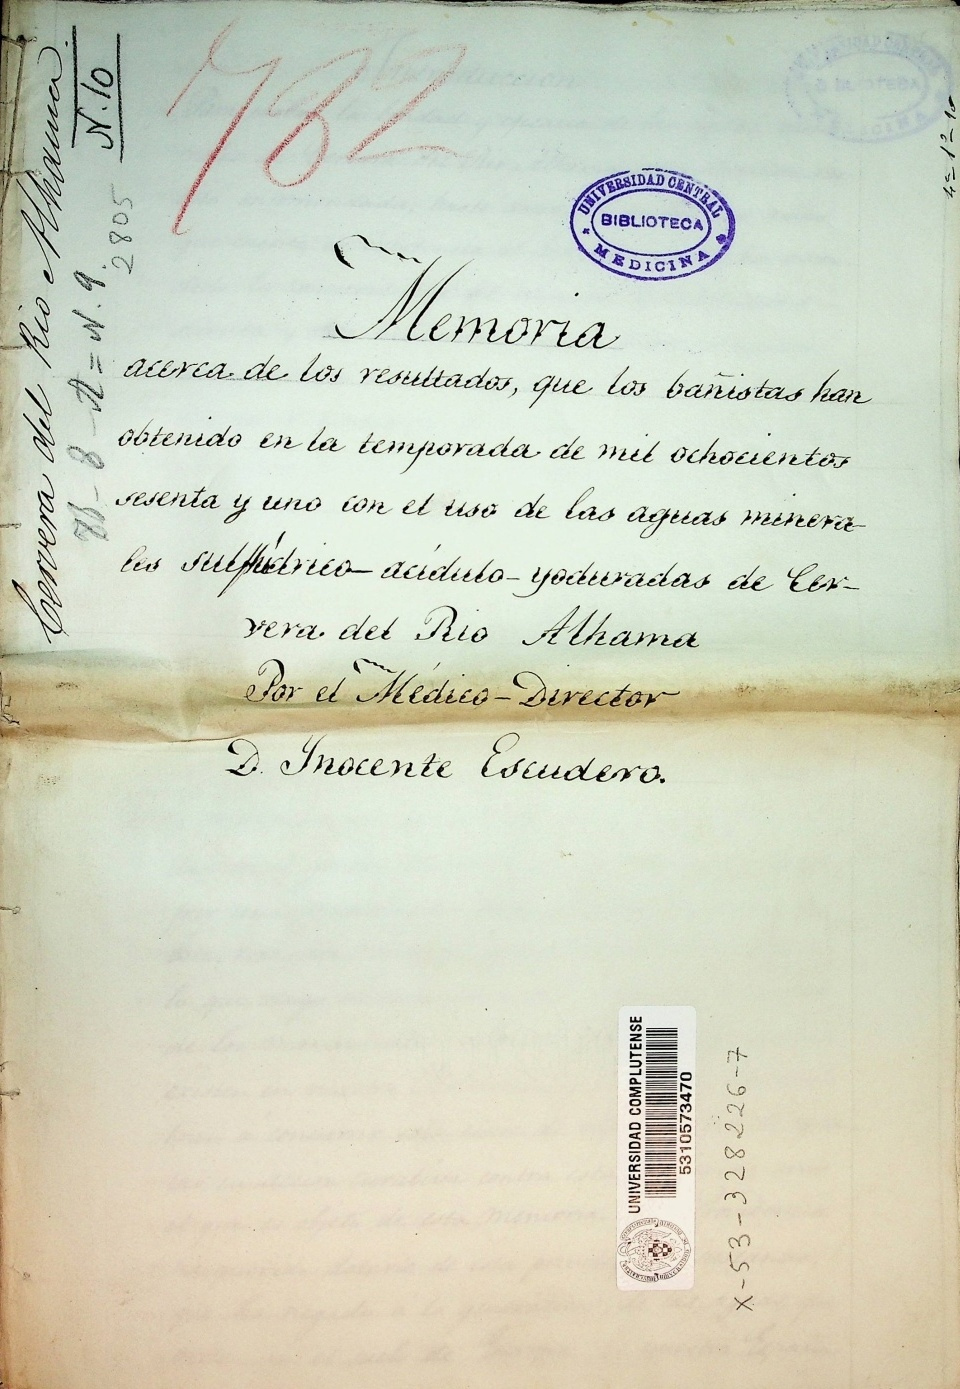 Cervera del Rio Alhama.
N. 10
2805
782
UNIVERSIDAD CENTRAL
BIBLIOTECA
MEDICINA
Memoria
acerca de los resultados, que los bañistas han
obtenido en la temporada de mil ochocientos
sesenta y uno con el uso de las aguas minera-
les sulfhídrico-acídulo-yoduradas de Cer-
vera del Rio Alhama
Por el Médico-Director
D. Inocente Escudero.
UNIVERSIDAD COMPLUTENSE
5310573470
X-53-328226-7